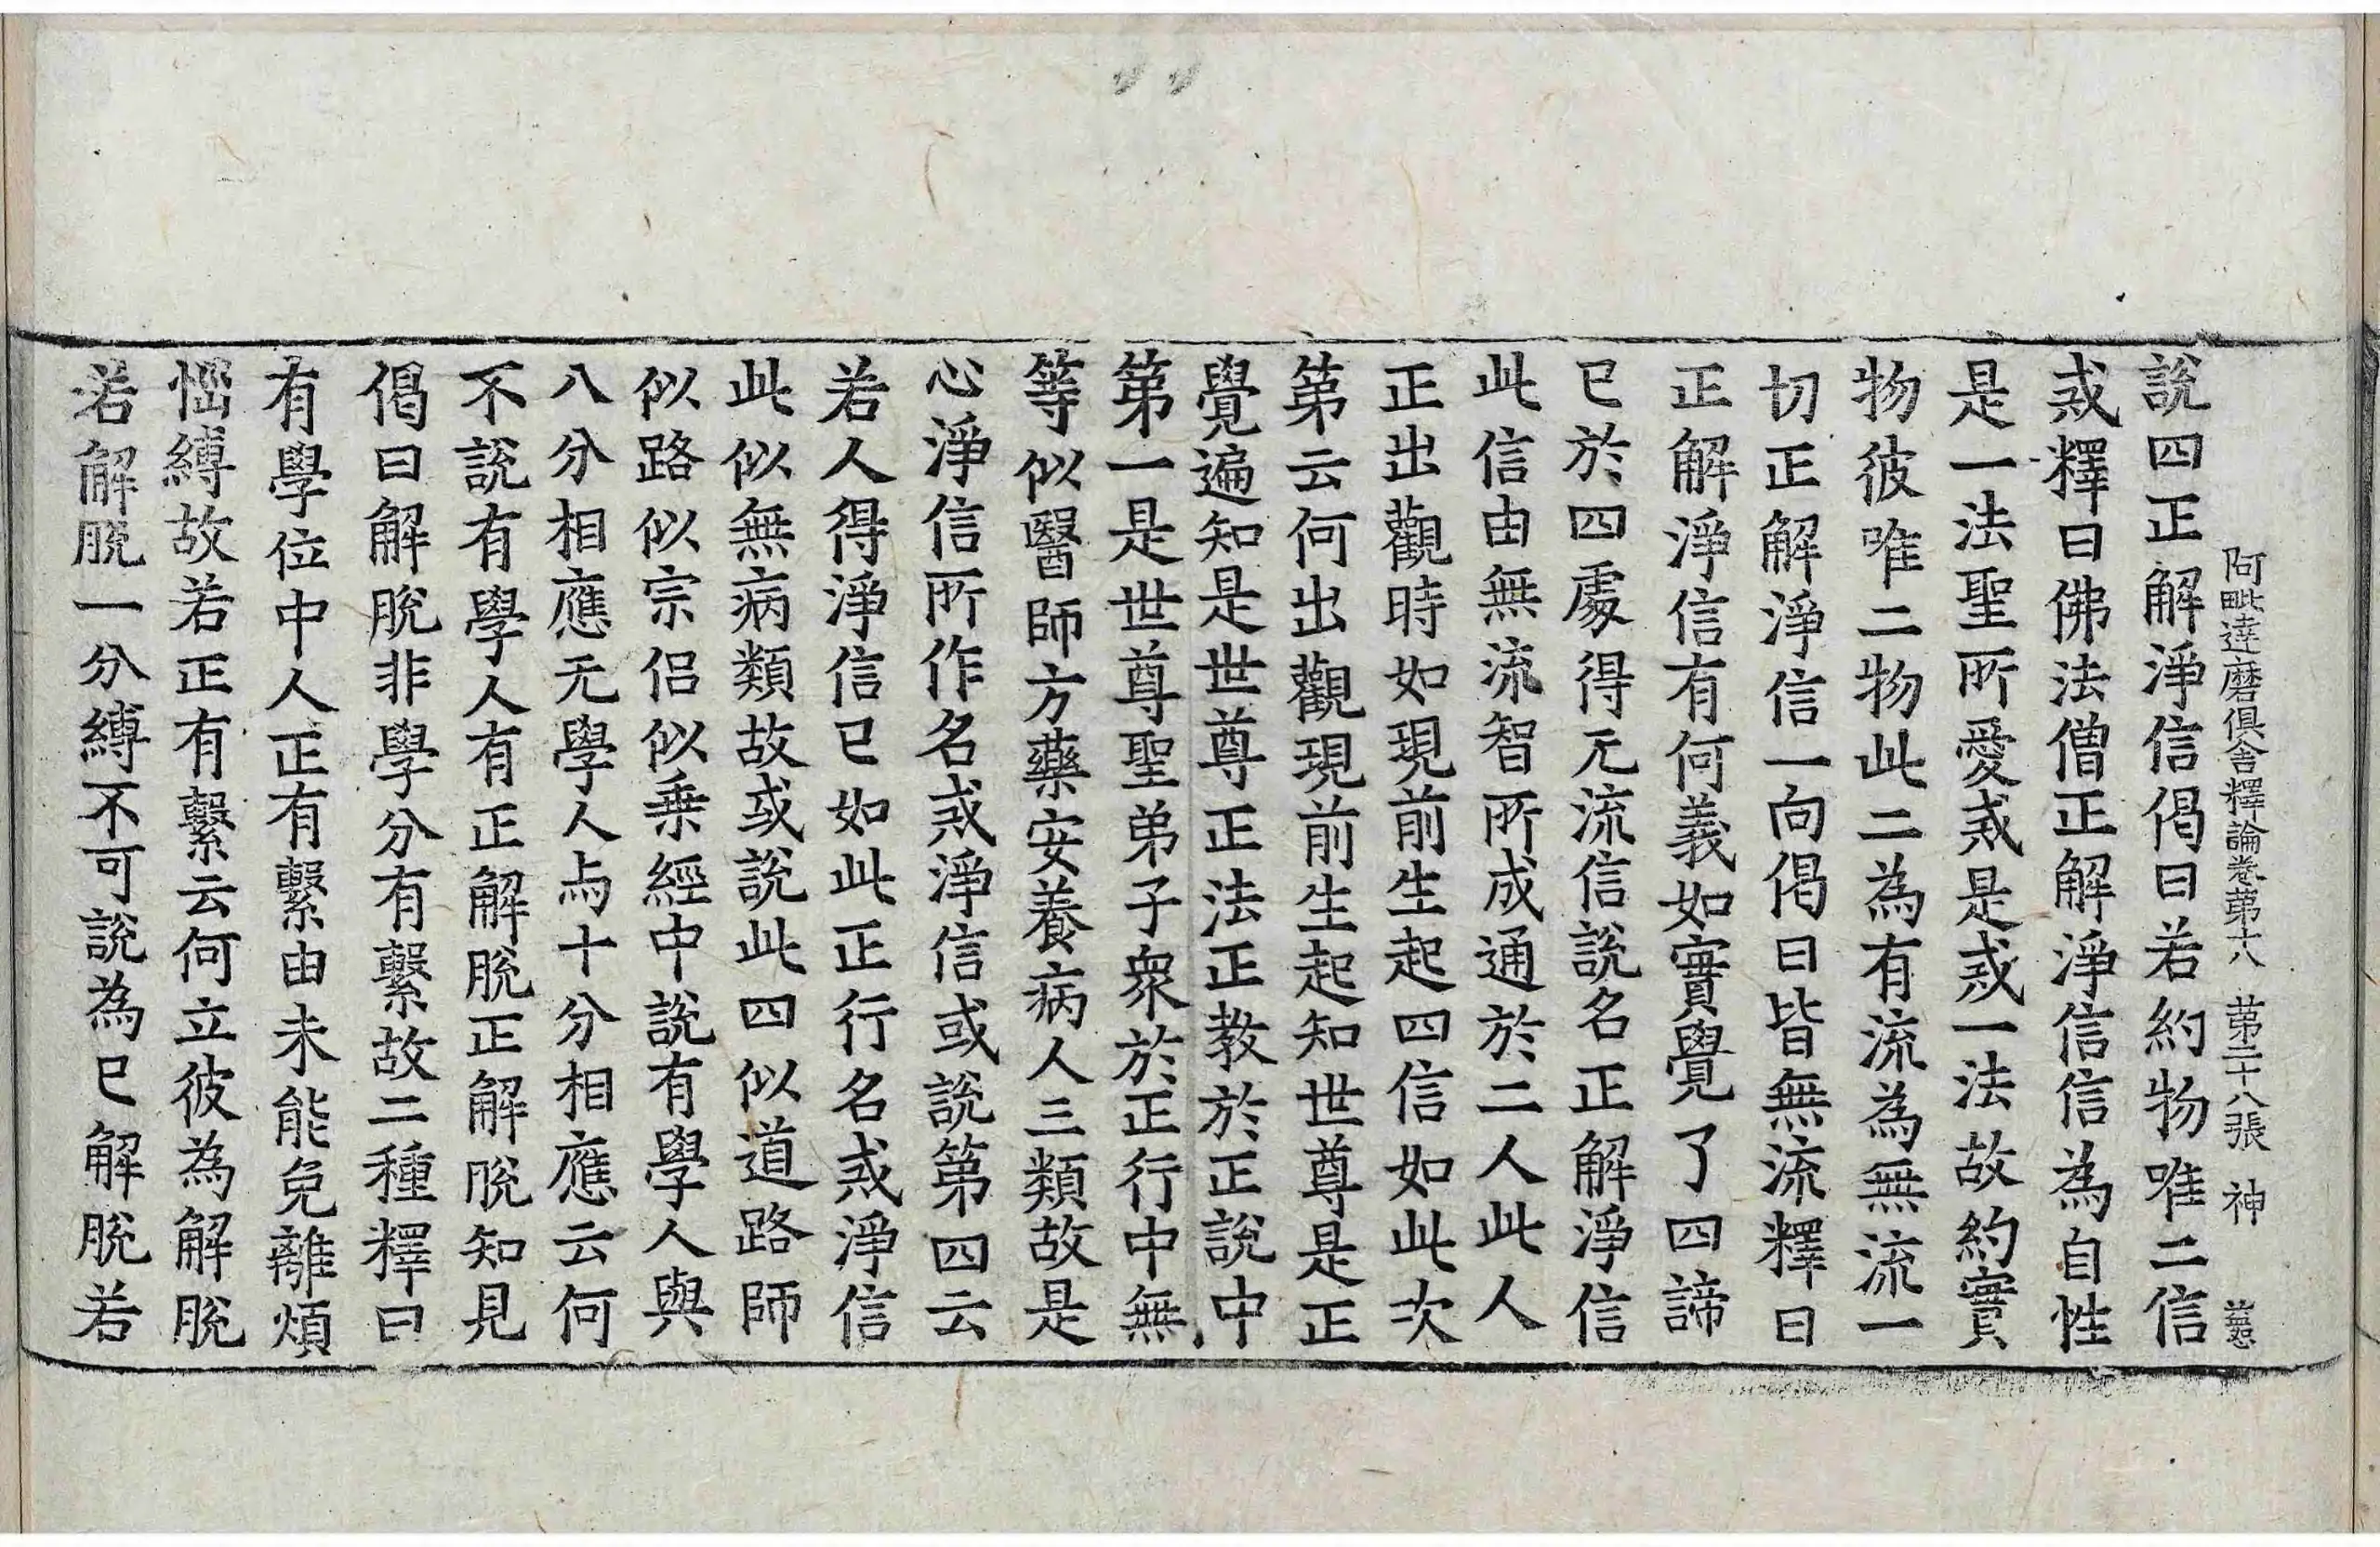 阿毗達磨俱舍釋論卷第十八 第二十八張 神
說四正解淨信偈曰若約物唯二信
戒釋曰佛法僧正解淨信信為自性
是一法聖所愛戒是戒一法故約實
物彼唯二物此二為有流為無流一
切正解淨信一向偈曰皆無流釋曰
正解淨信有何義如實覺了四諦
已於四處得无流信說名正解淨信
此信由無流智所成通於二人此人
正出觀時如現前生起四信如此次
第云何出觀現前生起知世尊是正
覺遍知是世尊正法正教於正說中
第一是世尊聖弟子衆於正行中無
等似醫師方藥安養病人三類故是
心淨信所作名戒淨信或說第四云
若人得淨信已如此正行名戒淨信
此似無病類故或說此四似道路師
似路似宗侣似乗經中說有學人與
八分相應无學人与十分相應云何
不說有學人有正解脫正解脫知見
偈曰解脫非學分有繫故二種釋曰
有學位中人正有繫由未能免離煩
惱縛故若正有繫云何立彼為解脫
若解脫一分縛不可說為已解脫若